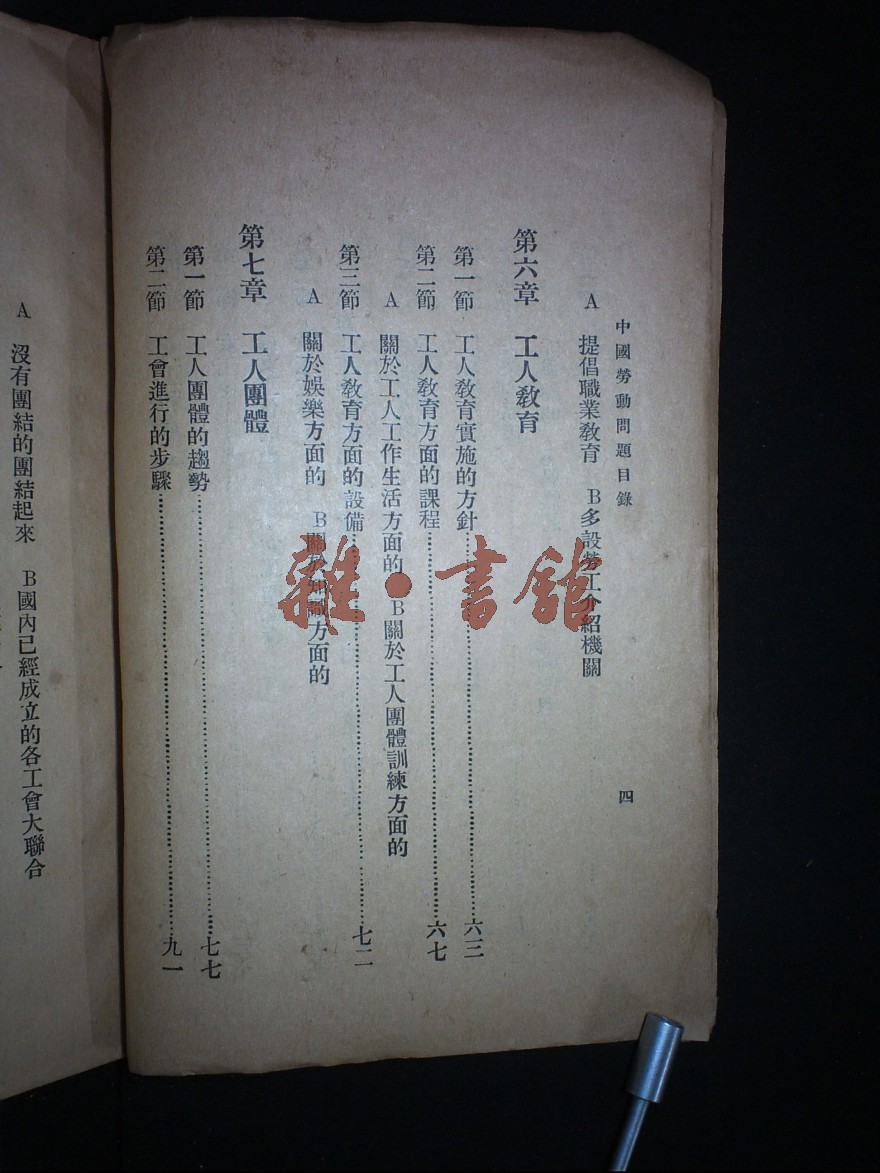 中國勞動問題目錄
四
A 提倡職業教育 B多設勞工介紹機關
第六章 工人教育
第一節 工人教育實施的方針……六三
第二節 工人教育方面的課程……六七
A 關於工人工作生活方面的 B關於工人團體訓練方面的
第三節 工人教育方面的設備……七二
A 關於娛樂方面的 B關於知識方面的
第七章 工人團體
第一節 工人團體的趨勢……七七
第二節 工會進行的步驟……九一
A 沒有團結的團結起來 B國內已經成立的各工會大聯合
雜·書館